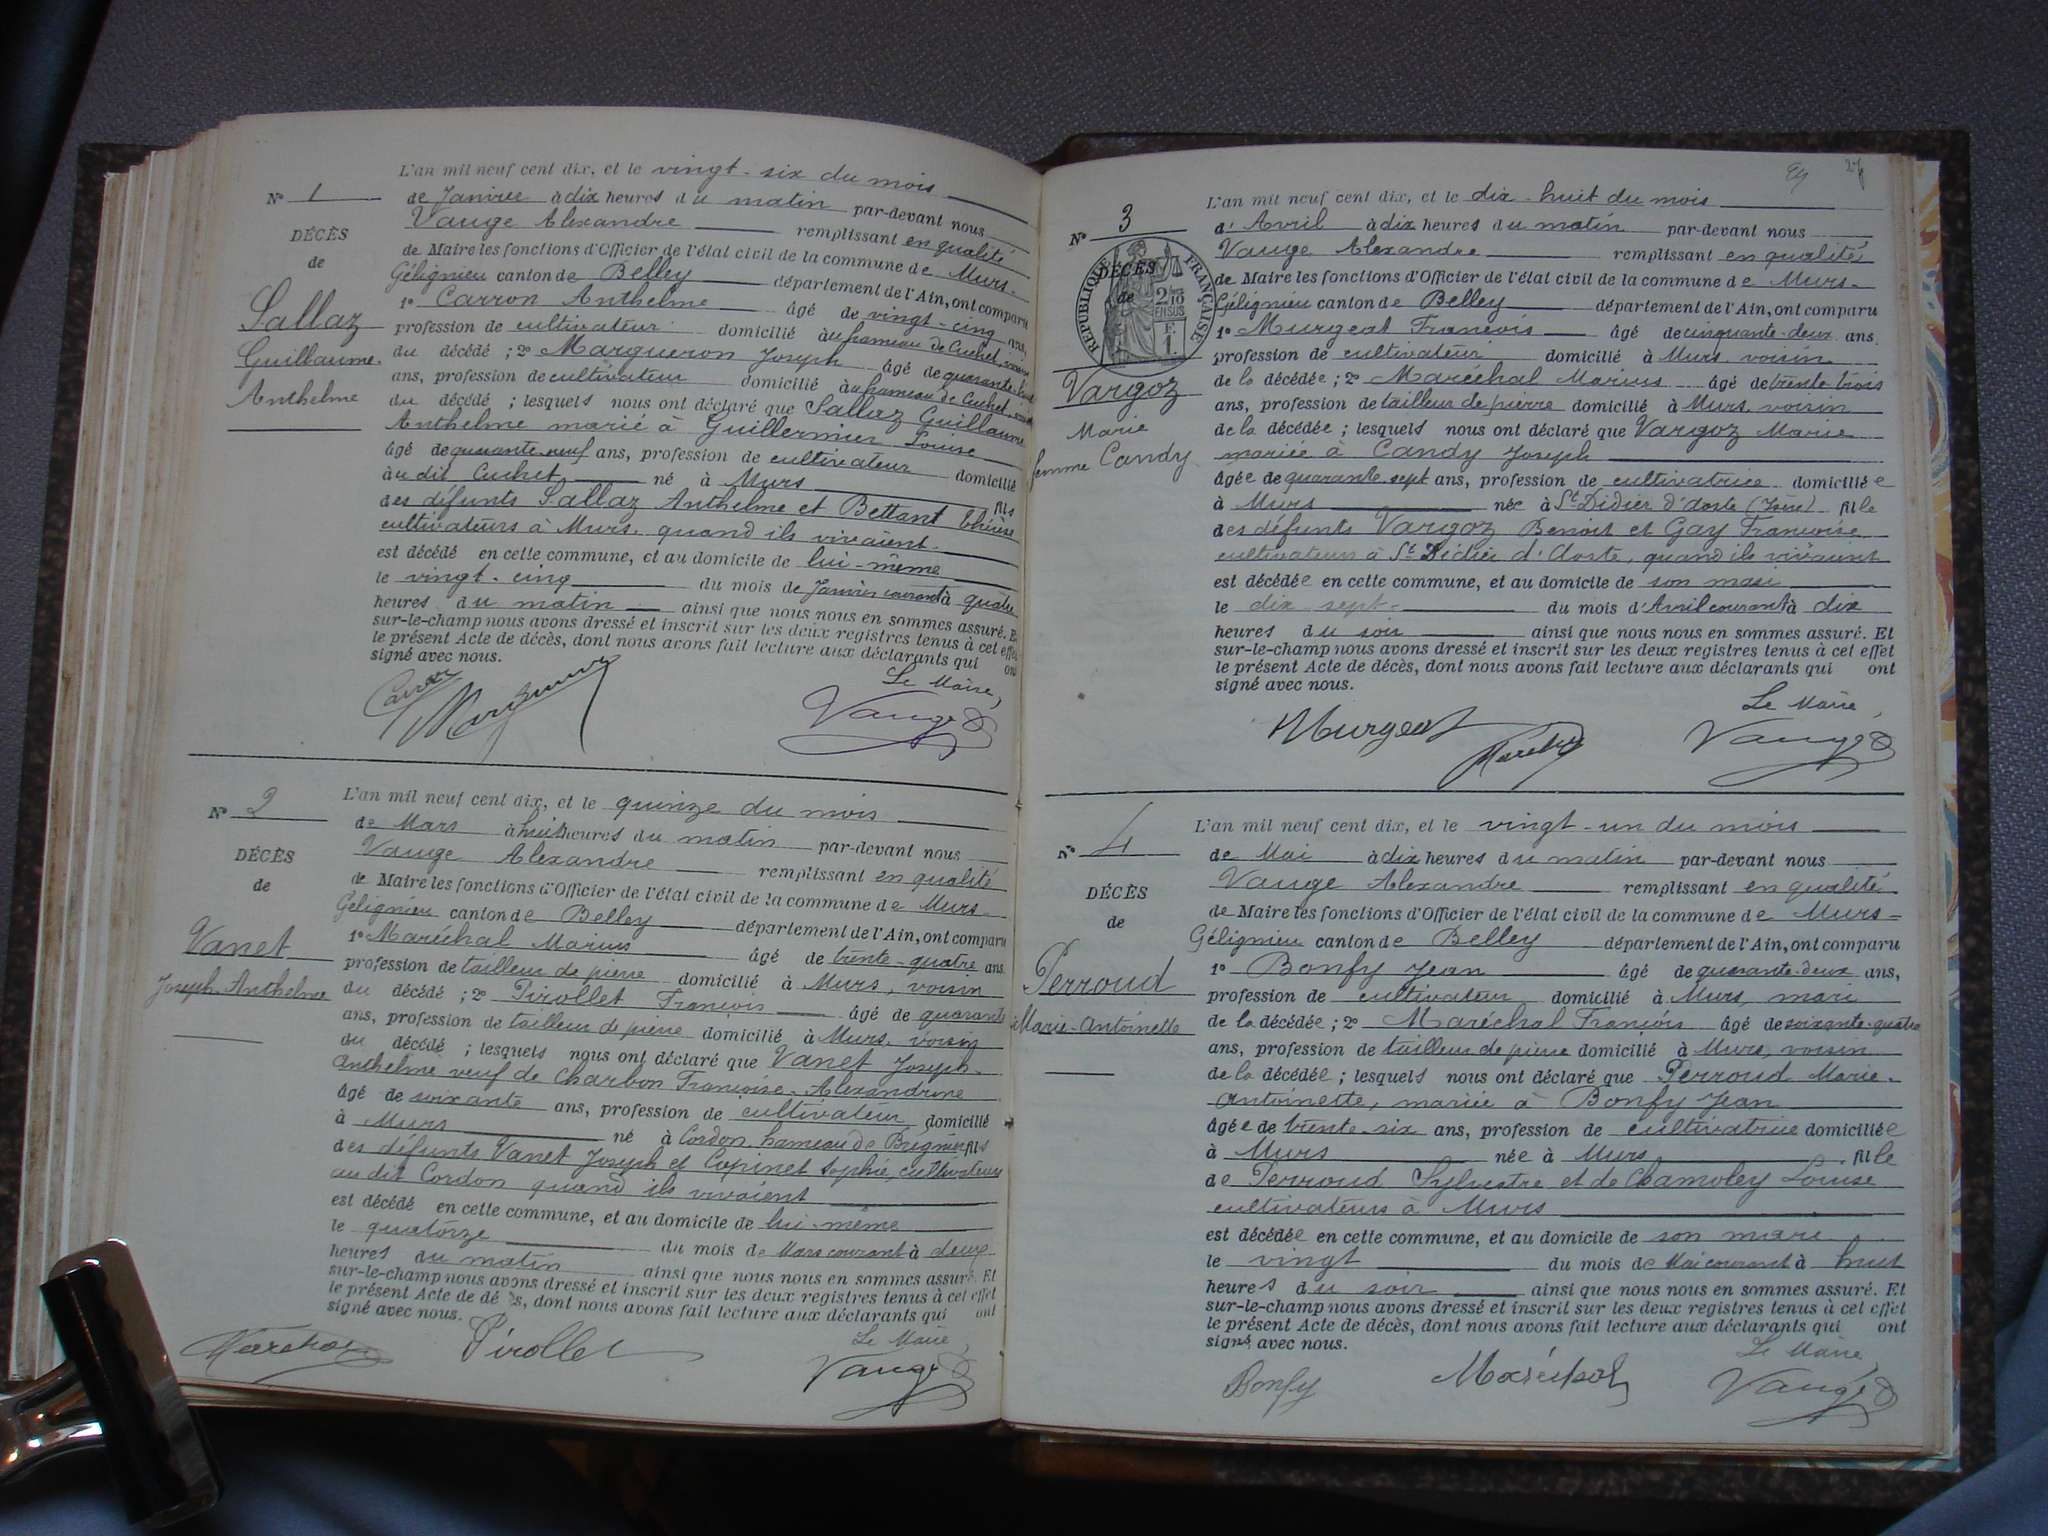 L'an mil neuf cent dix, et le vingt-six du mois
N° 1
de Janvier à dix heures du matin par-devant nous
Vauge Alexandre remplissant en qualité
DÉCÈS
de Maire les fonctions d'Officier de l'état civil de la commune de Murs-
de
Gélignieu canton de Belley département de l'Ain, ont comparu
1° Carron Anthelme âgé de vingt-cinq ans,
Sallaz
profession de cultivateur domicilié au hameau de Cuchet, voisin
Guillaume
du décédé ; 2° Margueron Joseph âgé de quarante
ans, profession de cultivateur domicilié au hameau de Cuchet, voisin
Anthelme
du décédé ; lesquels nous ont déclaré que Sallaz Guillaume
Anthelme marié à Guillermier Louise
âgé de quarante-neuf ans, profession de cultivateur domicilié
au dit Cuchet né à Murs fils
des défunts Sallaz Anthelme et Bettant Thérèse
cultivateurs à Murs, quand ils vivaient.
est décédé en cette commune, et au domicile de lui-même
le vingt-cinq du mois de Janvier courant à quatre
heures du matin ainsi que nous nous en sommes assuré. Et
sur-le-champ nous avons dressé et inscrit sur les deux registres tenus à cet effet
le présent Acte de décès, dont nous avons fait lecture aux déclarants qui ont
signé avec nous.
Le Maire,
Carron Vauge
L'an mil neuf cent dix, et le quinze du mois
N° 2
de Mars à huit heures du matin par-devant nous
Vauge Alexandre remplissant en qualité
DÉCÈS
de Maire les fonctions d'Officier de l'état civil de la commune de Murs-
de
Gélignieu canton de Belley département de l'Ain, ont comparu
Vanet
1° Maréchal Marius âgé de trente-quatre ans
profession de tailleur de pierre domicilié à Murs, voisin
Joseph-Anthelme
du décédé ; 2° Pirollet François âgé de quarante
ans, profession de tailleur de pierre domicilié à Murs, voisin
du décédé ; lesquels nous ont déclaré que Vanet Joseph-
Anthelme veuf de Charbon Françoise-Alexandrine
âgé de soixante ans, profession de cultivateur domicilié
à Murs né à Cordon hameau de Brégnier fils
des défunts Vanet Joseph et Cupinet Sophie, cultivateurs
au dit Cordon quand ils vivaient
est décédé en cette commune, et au domicile de lui-même
le quatorze du mois de Mars courant à deux
heures du matin ainsi que nous nous en sommes assuré. Et
sur-le-champ nous avons dressé et inscrit sur les deux registres tenus à cet effet
le présent Acte de décès, dont nous avons fait lecture aux déclarants qui ont
signé avec nous.
Le Maire,
Marechal Pirollet Vauge
27
L'an mil neuf cent dix, et le dix-huit du mois
N° 3
d'Avril à dix heures du matin par-devant nous
Vauge Alexandre remplissant en qualité
DÉCÈS
de
RÉPUBLIQUE FRANÇAISE
2/10 EN SUS
F. 1.
de Maire les fonctions d'Officier de l'état civil de la commune de Murs-
Gélignieu canton de Belley département de l'Ain, ont comparu
1° Murgeat François âgé de cinquante-deux ans
profession de cultivateur domicilié à Murs, voisin
Vargoz
de la décédée ; 2° Maréchal Marius âgé de trente-trois
ans, profession de tailleur de pierre domicilié à Murs, voisin
Marie
de la décédée ; lesquels nous ont déclaré que Vargoz Marie
femme Candy
mariée à Candy Joseph
âgée de quarante-sept ans, profession de cultivatrice domiciliée
à Murs née à St Didier d'Aoste (Isère) fille
des défunts Vargoz Benoit et Gay Françoise
cultivateurs à St Didier d'Aoste, quand ils vivaient
est décédée en cette commune, et au domicile de son mari
le dix sept du mois d'Avril courant à dix
heures du soir ainsi que nous nous en sommes assuré. Et
sur-le-champ nous avons dressé et inscrit sur les deux registres tenus à cet effet
le présent Acte de décès, dont nous avons fait lecture aux déclarants qui ont
signé avec nous.
Le Maire,
Murgeat Maréchal Vauge
L'an mil neuf cent dix, et le vingt-un du mois
N° 4
de Mai à dix heures du matin par-devant nous
Vauge Alexandre remplissant en qualité
DÉCÈS
de Maire les fonctions d'Officier de l'état civil de la commune de Murs-
de
Gélignieu canton de Belley département de l'Ain, ont comparu
1° Bonfy Jean âgé de quarante-deux ans,
Perroud
profession de cultivateur domicilié à Murs, mari
Marie-Antoinette
de la décédée ; 2° Maréchal François âgé de soixante-quatre
ans, profession de tailleur de pierre domicilié à Murs, voisin
de la décédée ; lesquels nous ont déclaré que Perroud Marie-
Antoinette, mariée à Bonfy Jean
âgée de trente-six ans, profession de cultivatrice domiciliée
à Murs née à Murs fille
de Perroud Sylvestre et de Chamoley Louise
cultivateurs à Murs
est décédée en cette commune, et au domicile de son mari
le vingt du mois de Mai courant à huit
heures du soir ainsi que nous nous en sommes assuré. Et
sur-le-champ nous avons dressé et inscrit sur les deux registres tenus à cet effet
le présent Acte de décès, dont nous avons fait lecture aux déclarants qui ont
signé avec nous.
Le Maire,
Bonfy Maréchal Vauge